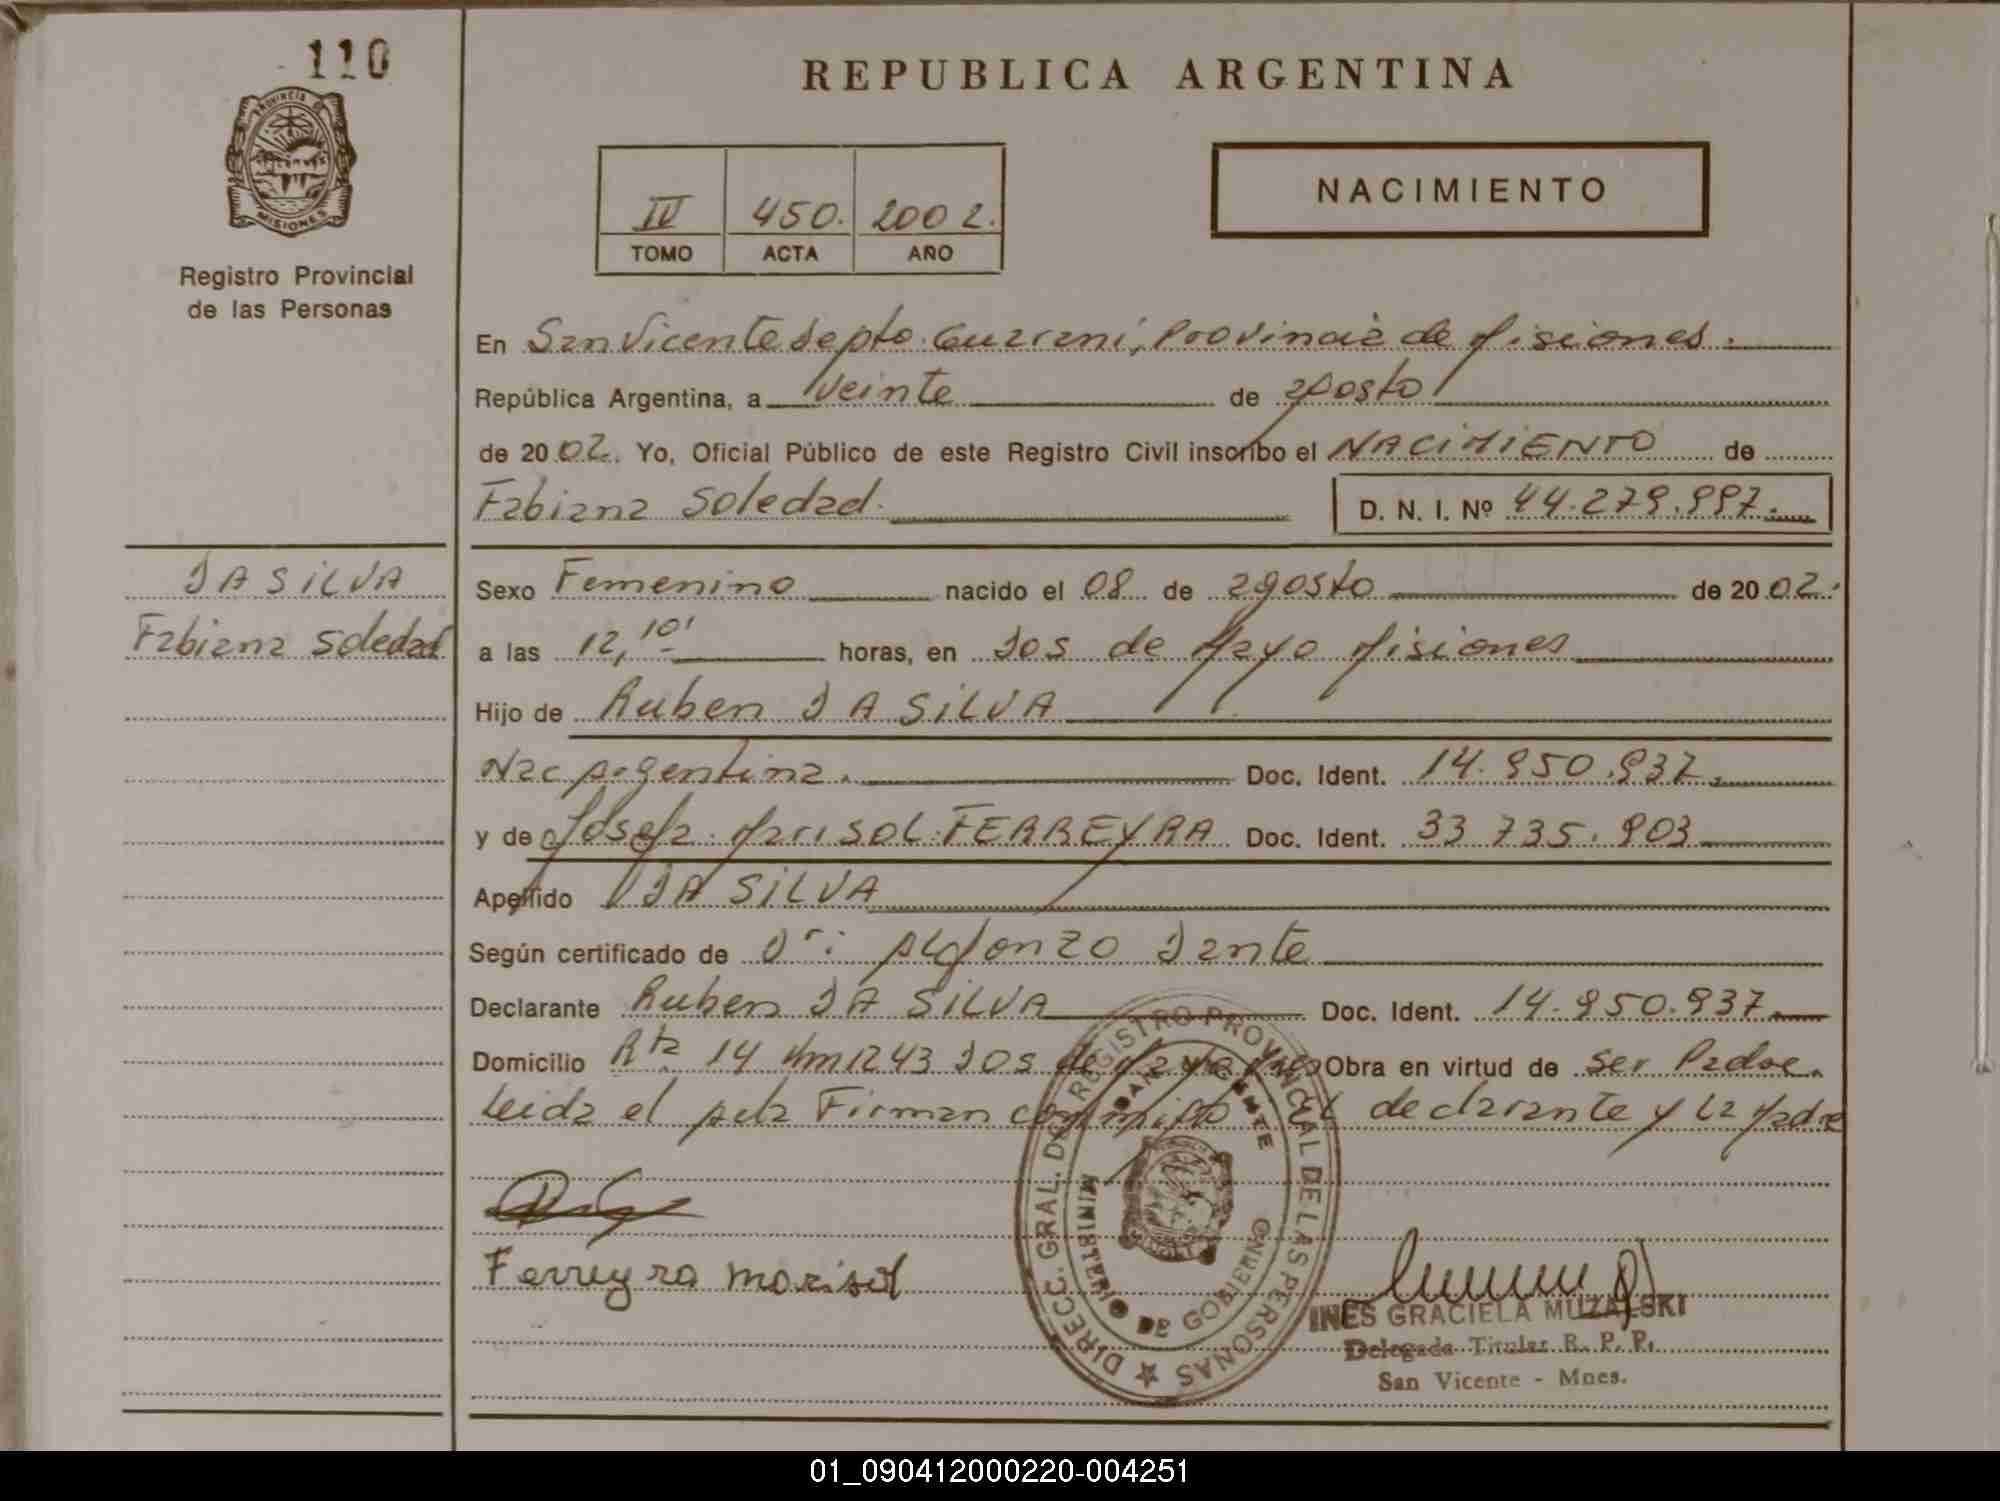 110
PROVINCIA DE
MISIONES
Registro Provincial
de las Personas
REPUBLICA ARGENTINA
IV 450. 2002.
TOMO ACTA AÑO
NACIMIENTO
En San Vicente depto. Guarani, Provincia de Misiones.
República Argentina, a veinte de agosto
de 2002. Yo, Oficial Público de este Registro Civil inscribo el NACIMIENTO de
Fabiana Soledad. D. N. I. Nº 44.279.997.
DA SILVA
Fabiana Soledad
Sexo Femenino nacido el 08 de agosto de 2002.
a las 12,10' horas, en Dos de Mayo Misiones
Hijo de Ruben DA SILVA
Nac Argentina. Doc. Ident. 14.950.937.
y de Josefa Marisol FERREYRA Doc. Ident. 33 735.903
Apellido DA SILVA
Según certificado de Dr: Alfonzo Dante
Declarante Ruben DA SILVA Doc. Ident. 14.950.937.
Domicilio Rta 14 Km 1243 Dos de Mayo Mnes Obra en virtud de ser Padre.
Leida el acta Firman conmigo el declarante y la Madre
Ferreyra Marisol
DIRECC. GRAL. DEL REGISTRO PROVINCIAL DE LAS PERSONAS
SAN VICENTE
MINISTERIO DE GOBIERNO
INES GRACIELA MUZALSKI
Delegada Titular R. P. P.
San Vicente - Mnes.
01_090412000220-004251